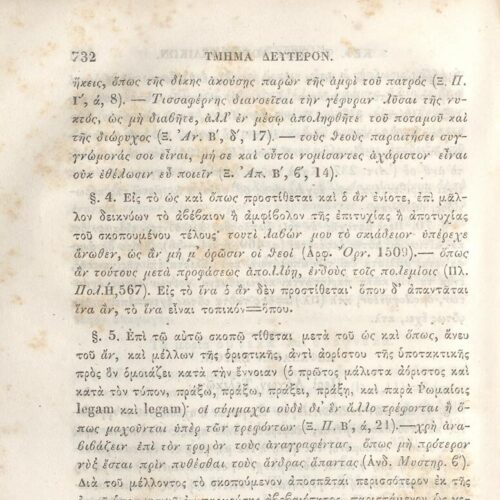 732 ΤΜΗΜΑ ΔΕΥΤΕΡΟΝ.
ἥκεις, ὅπως τῆς δίκης ἀκούσῃς παρὼν τῆς ἀμφὶ τοῦ πατρός (Ξ. Π.
Γ′, ά, 8). — Τισσαφέρνης διανοεῖται τὴν γέφυραν λῦσαι τῆς νυ-
κτός, ὡς μὴ διαβῆτε, ἀλλ' ἐν μέσῳ ἀποληφθῆτε τοῦ ποταμοῦ καὶ
τῆς διώρυχος (Ξ. Ἀν. Β′, δ′, 17). — τοὺς θεοὺς παραιτήσει συγ-
γνώμονάς σοι εἶναι, μή σε καὶ οὗτοι νομίσαντες ἀχάριστον εἶναι
οὐκ ἐθέλωσιν εὖ ποιεῖν (Ξ. Ἀπ. Β′, β′, 14).
§. 4. Εἰς τὸ ὡς καὶ ὅπως προστίθεται καὶ ὁ ἂν ἐνίοτε, ἐπὶ μᾶλ-
λον δεικνύων τὸ ἀβέβαιον ἢ ἀμφίβολον τῆς ἐπιτυχίας ἢ ἀποτυχίας
τοῦ σκοπουμένου τέλους· τουτὶ λαβών μου τὸ σκιάδειον ὑπέρεχε
ἄνωθεν, ὡς ἂν μή μ' ὁρῶσιν οἱ θεοί (Ἀρφ. Ὄρν. 1509). — ὅπως
ἂν τούτους μετὰ προφάσεως ἀπολλύῃ, ἐνδοὺς τοῖς πολεμίοις (Πλ.
Πολ.Η,567). Εἰς τὸ ἵνα ὁ ἂν δὲν προστίθεται· ὅπου δ' ἀπαντᾶται
ἵνα ἄν, τὸ ἵνα εἶναι τοπικόν=ὅπου.
§. 5. Ἐπὶ τῷ αὐτῷ σκοπῷ τίθεται μετὰ τοῦ ὡς καὶ ὅπως, ἄνευ
τοῦ ἄν, καὶ μέλλων τῆς ὁριστικῆς, ἀντὶ ἀορίστου τῆς ὑποτακτικῆς
πρὸς ὃν ὁμοιάζει κατὰ τὴν ἔννοιαν (ὁ πρῶτος μάλιστα ἀόριστος καὶ
κατὰ τὸν τύπον, πράξω, πράξω, πράξει, πράξῃ, καὶ παρὰ Ῥωμαίοις
legam καὶ legam)· οἱ σύμμαχοι οὐδὲ δι' ἓν ἄλλο τρέφονται ἢ ὅ-
πως μαχοῦνται ὑπὲρ τῶν τρεφόντων (Ξ. Π. Β′, ά, 21). — χρὴ ἀνα-
βιβάζειν ἐπὶ τὸν τροχὸν τοὺς ἀναγραφέντας, ὅπως μὴ πρότερον
νὺξ ἔσται πρὶν πυθέσθαι τοὺς ἄνδρας ἅπαντας (Ἀνδ. Μυστηρ. β′).
Διὰ τοῦ μέλλοντος τὸ σκοπούμενον ἀποσπᾶται περισσότερον ἐκ τῆς